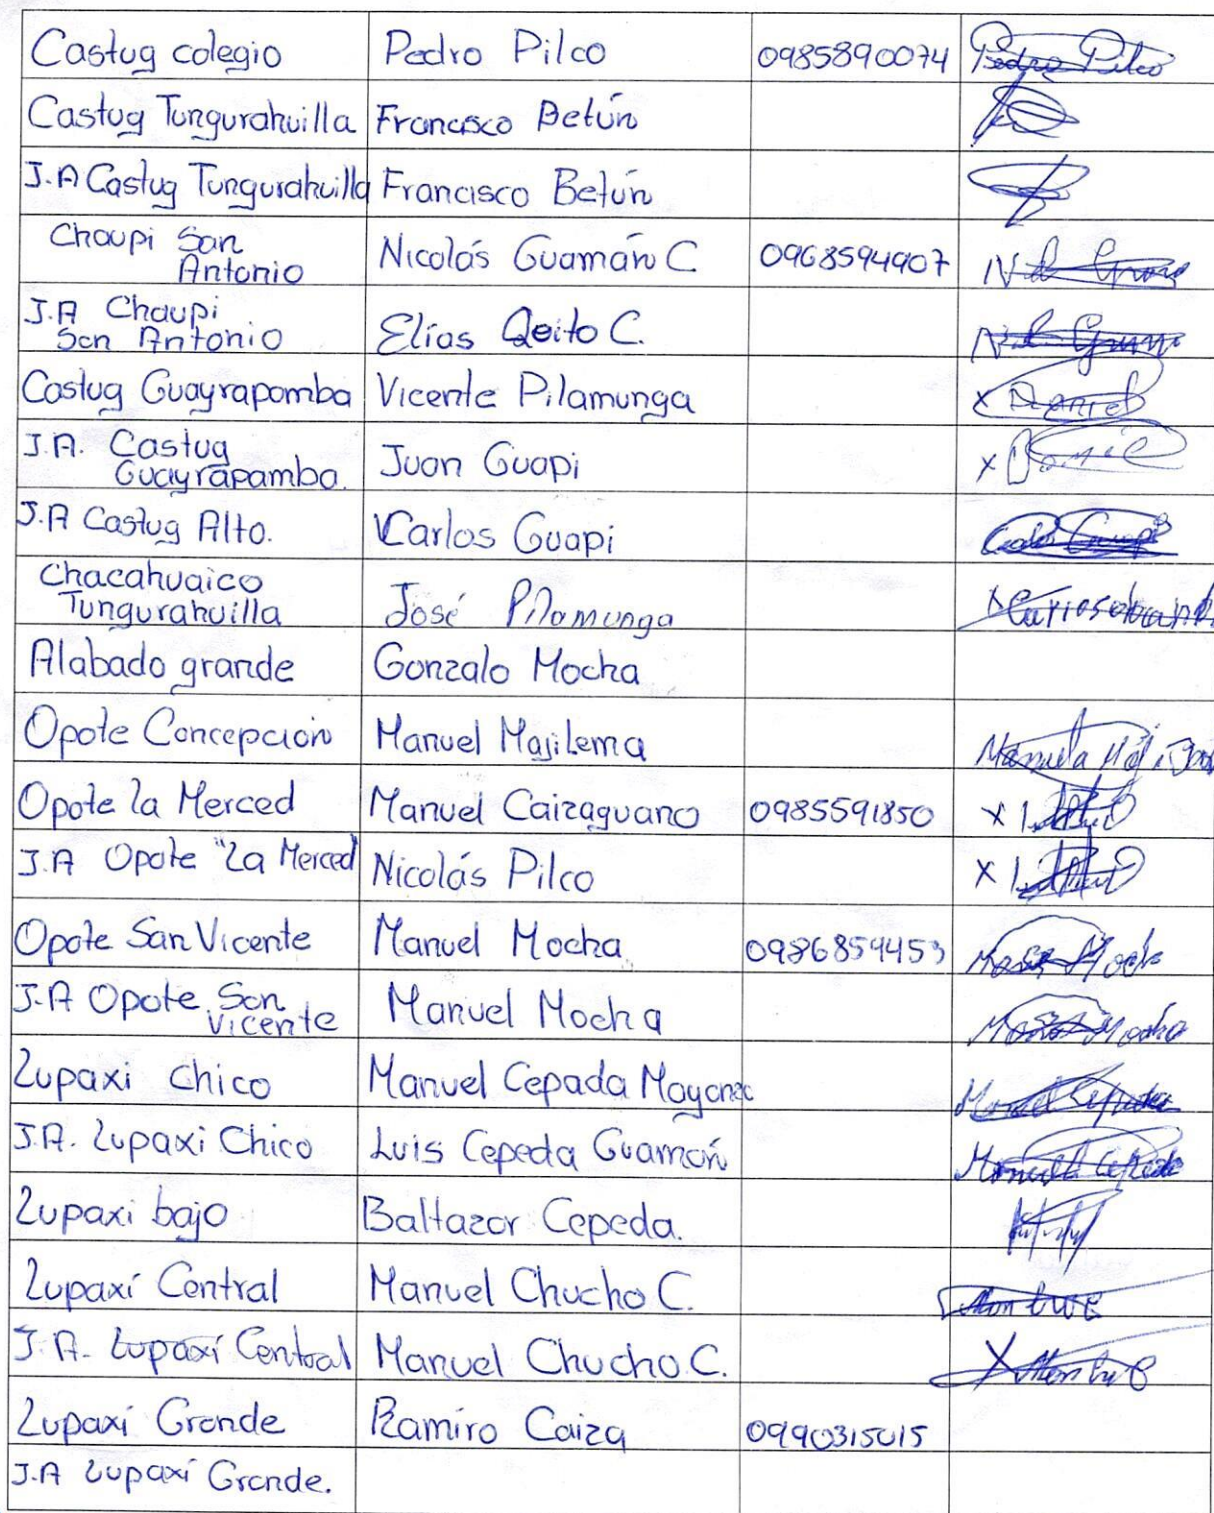 Castug colegio Pedro Pilco 0985890074 Pedro Pilco
Castug Tungurahuilla Francisco Betún
J.A Castug Tungurahuilla Francisco Betún
Chaupi San
Antonio Nicolás Guamán C 0968594907
J.A Chaupi
San Antonio Elías Quito C.
Castug Guayrapamba Vicente Pilamunga X Daniel
J.A. Castug
Guayrapamba. Juan Guapi X
J.A Castug Alto. Carlos Guapi
Chacahuaico
Tungurahuilla José Pilamunga X
Alabado grande Gonzalo Mocha
Opote Concepción Manuel Majilema
Opote la Merced Manuel Caizaguano 0985591850 X
J.A Opote "La Merced Nicolás Pilco X
Opote San Vicente Manuel Mocha 0986859453
J.A Opote San
Vicente Manuel Mocha
Lupaxi Chico Manuel Cepada
J.A. Lupaxi Chico Luis Cepeda Guamán
Lupaxi bajo Baltazar Cepeda.
Lupaxí Central Manuel Chucho C.
J.A. Lupaxí Central Manuel Chucho C. X
Lupaxí Grande Ramiro Caiza 0990315015
J.A Lupaxí Grande.